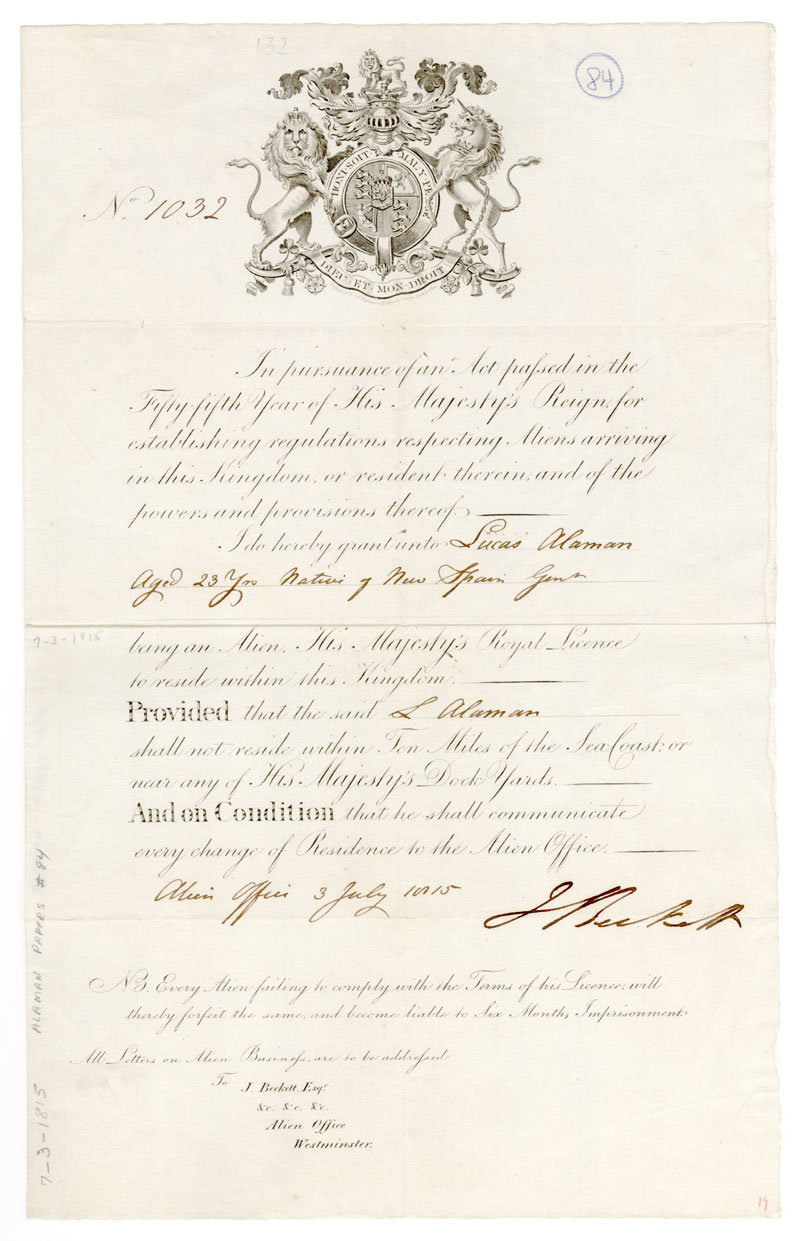 132
84
No. 1032
HONI SOIT MAL Y PE
DIEU ET MON DROIT
In pursuance of an Act passed in the
Fifty-fifth Year of His Majesty's Reign, for
establishing regulations respecting Aliens arriving
in this Kingdom, or resident therein, and of the
powers and provisions thereof.
I do hereby grant unto Lucas Alaman
Aged 23 Yrs Native of New Spain Gent
7-3-1815
being an Alien, His Majesty's Royal Licence
to reside within this Kingdom.
Provided that the said L Alaman
shall not reside within Ten Miles of the Sea Coast; or
near any of His Majesty's Dock Yards.
And on Condition that he shall communicate
every change of Residence to the Alien Office.
Alien Office 3 July 1815
J Beckett
NB. Every Alien failing to comply with the Terms of his Licence, will
thereby forfeit the same, and become liable to Six Months Imprisonment.
All Letters on Alien Business, are to be addressed
To J. Beckett, Esqr.
&c. &c. &c.
Alien Office
Westminster.
7-3-1815 ALAMAN PAPERS #84
19